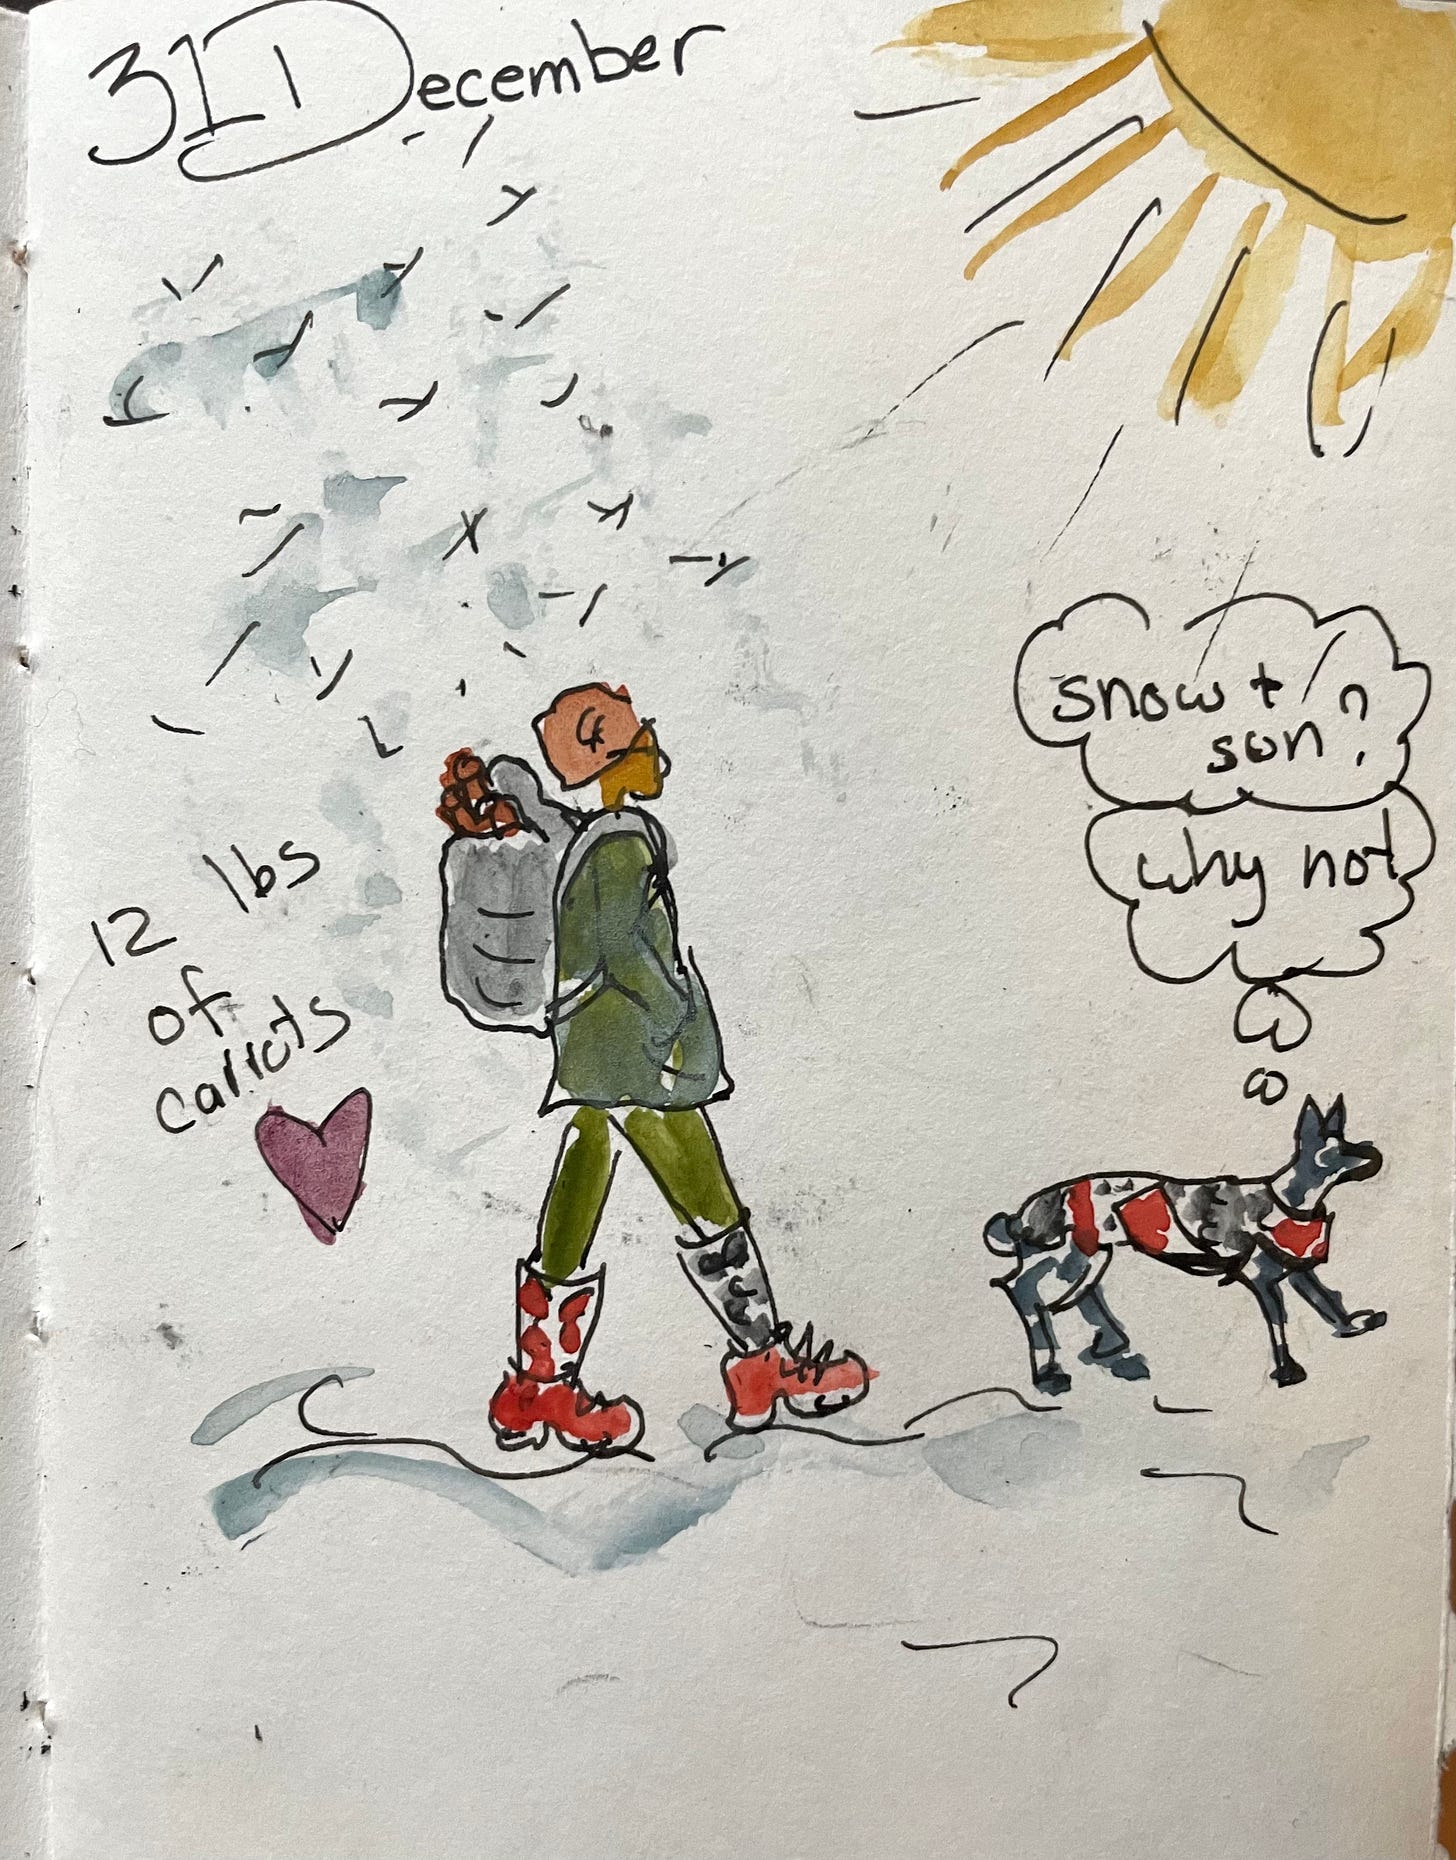 31 December
snow +
sun?
why not
12 lbs
of
carrots